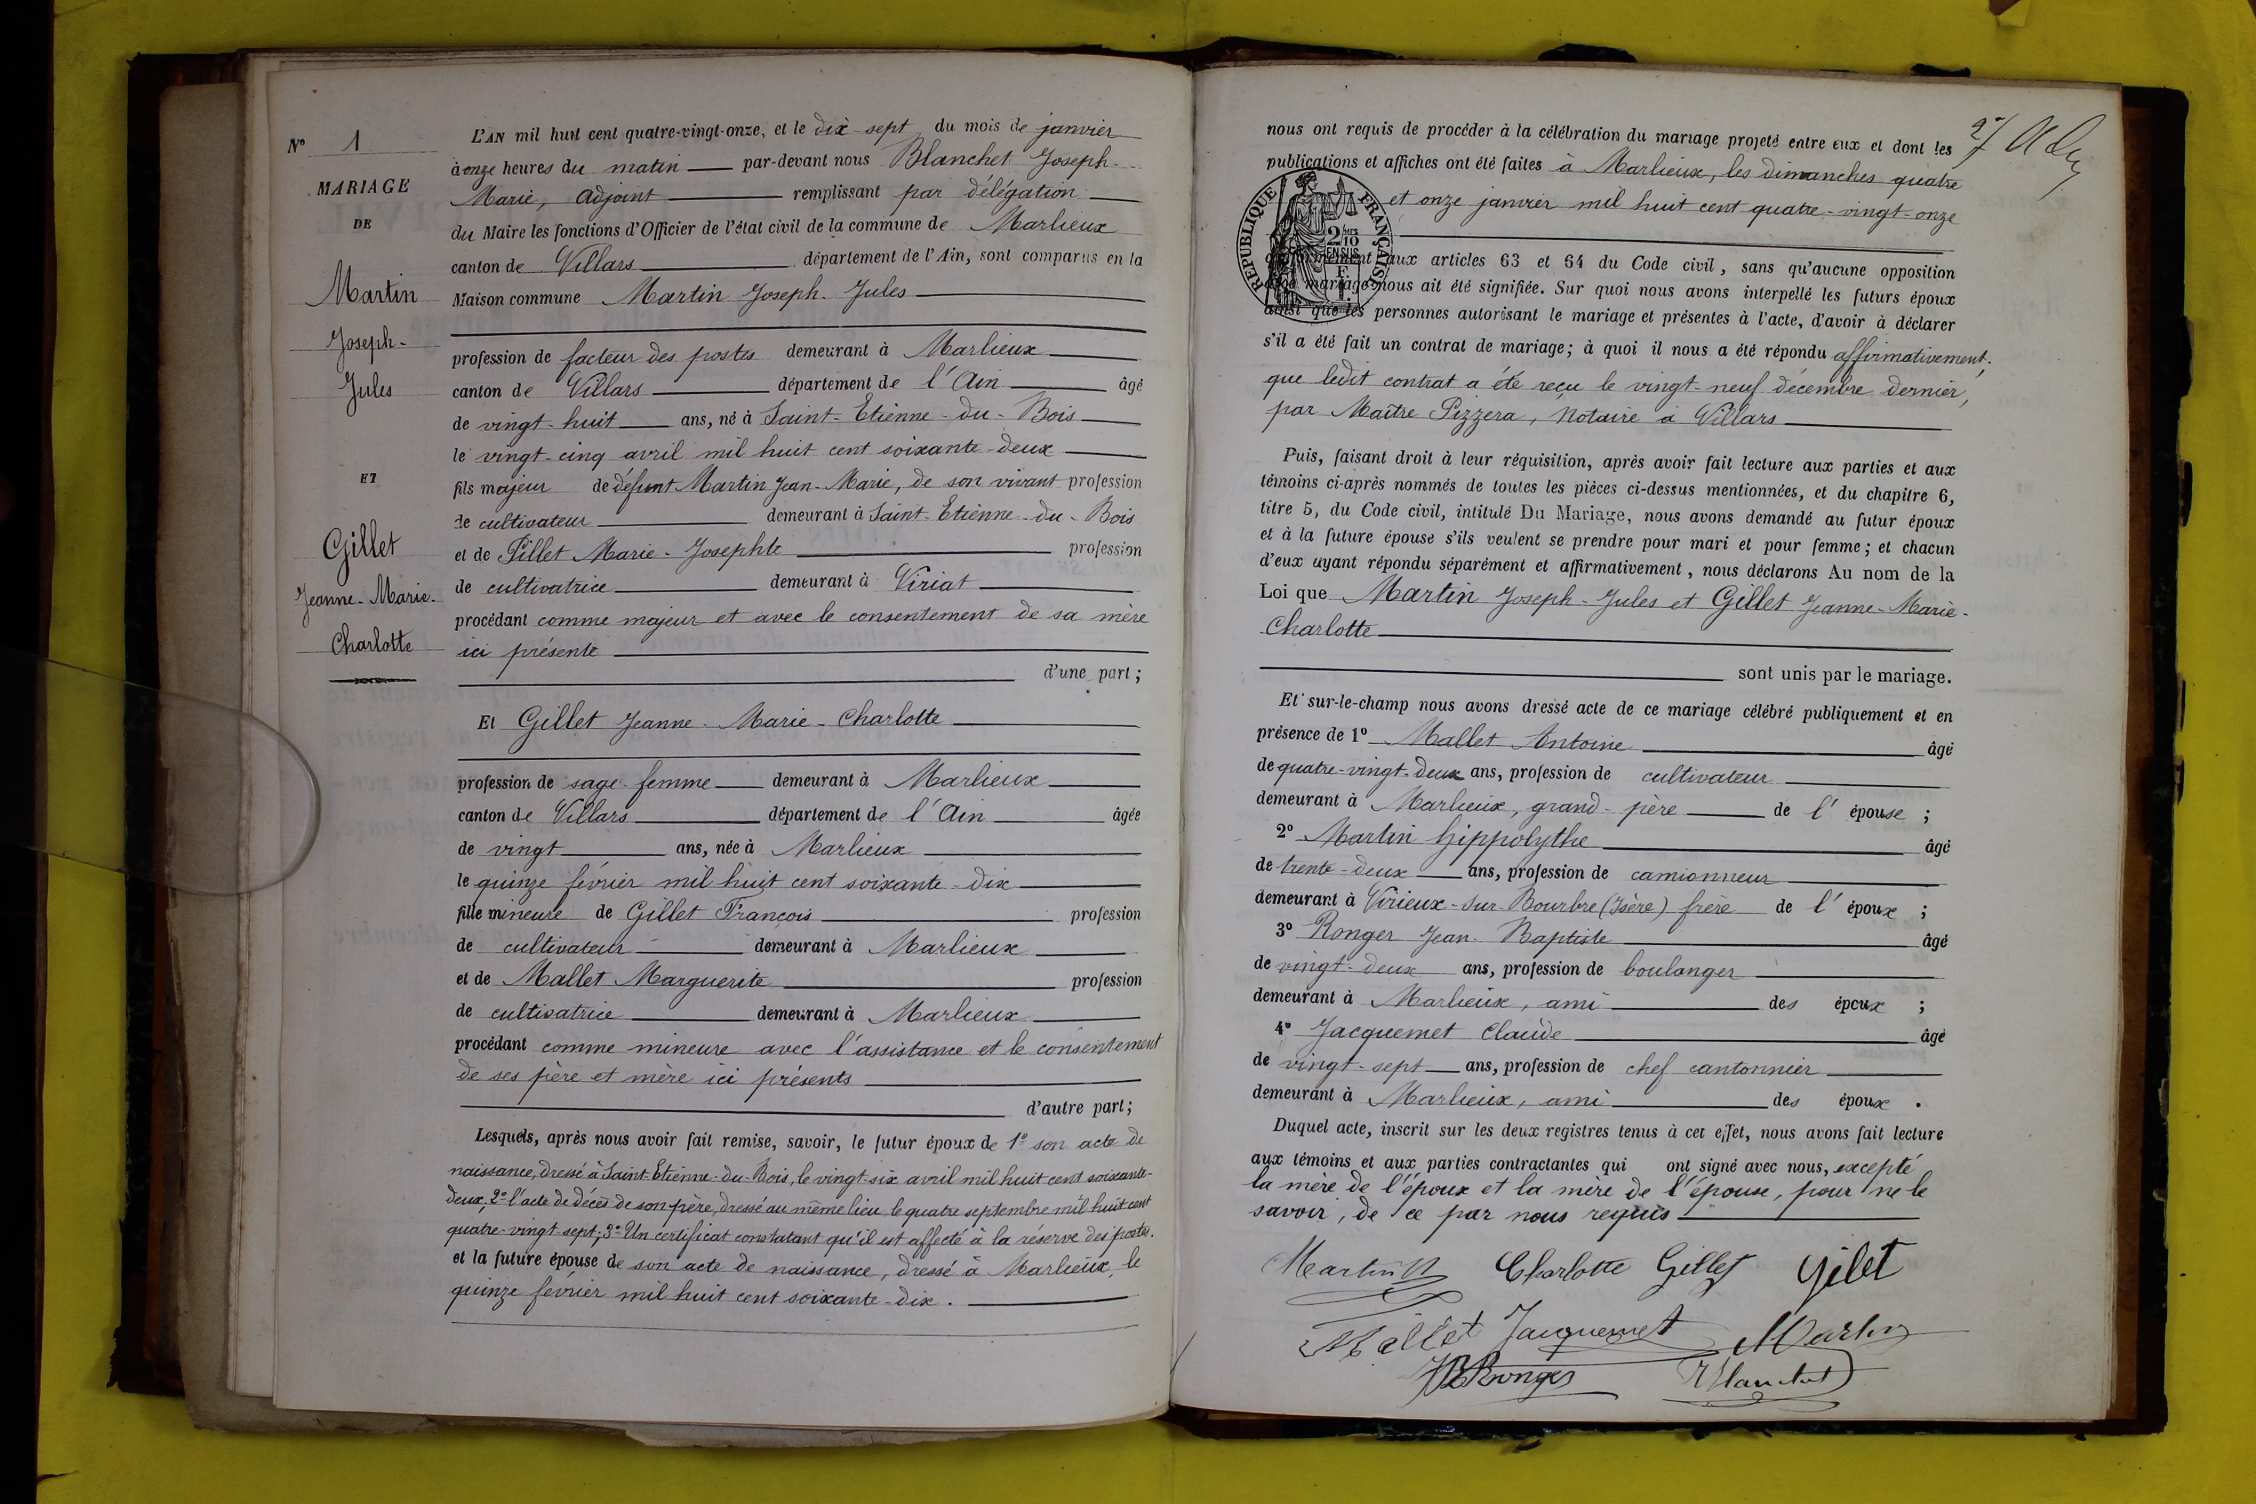 N° 1
MARIAGE
DE
Martin
Joseph-
Jules
ET
Gillet
Jeanne-Marie-
Charlotte
L'AN mil huit cent quatre-vingt-onze, et le dix-sept du mois de janvier
à onze heures du matin par-devant nous Blanchet Joseph-
Marie, adjoint remplissant par délégation
du Maire les fonctions d'Officier de l'état civil de la commune de Marlieux
canton de Villars département de l'Ain, sont comparus en la
Maison commune Martin Joseph-Jules
profession de facteur des postes demeurant à Marlieux
canton de Villars département de l'Ain âgé
de vingt-huit ans, né à Saint-Etienne-du-Bois
le vingt-cinq avril mil huit cent soixante-deux
fils majeur de défunt Martin Jean-Marie, de son vivant profession
de cultivateur demeurant à Saint-Etienne-du-Bois
et de Pillet Marie-Josephte profession
de cultivatrice demeurant à Viriat
procédant comme majeur et avec le consentement de sa mère
ici présente
d'une part;
Et Gillet Jeanne-Marie-Charlotte
profession de sage-femme demeurant à Marlieux
canton de Villars département de l'Ain âgée
de vingt ans, née à Marlieux
le quinze février mil huit cent soixante-dix
fille mineure de Gillet François profession
de cultivateur demeurant à Marlieux
et de Mallet Marguerite profession
de cultivatrice demeurant à Marlieux
procédant comme mineure avec l'assistance et le consentement
de ses père et mère ici présents
d'autre part;
Lesquels, après nous avoir fait remise, savoir, le futur époux de 1° son acte de
naissance, dressé à Saint-Etienne-du-Bois, le vingt-six avril mil huit cent soixante-
deux; 2° l'acte de décès de son père, dressé au même lieu le quatre septembre mil huit cent
quatre-vingt sept; 3° Un certificat constatant qu'il est affecté à la réserve des postes.
et la future épouse de son acte de naissance, dressé à Marlieux, le
quinze février mil huit cent soixante-dix.
nous ont requis de procéder à la célébration du mariage projeté entre eux et dont les
publications et affiches ont été faites à Marlieux, les dimanches quatre
et onze janvier mil huit cent quatre-vingt-onze
RÉPUBLIQUE FRANÇAISE
2/10
EN SUS
conformément aux articles 63 et 64 du Code civil, sans qu'aucune opposition
audit mariage nous ait été signifiée. Sur quoi nous avons interpellé les futurs époux
ainsi que les personnes autorisant le mariage et présentes à l'acte, d'avoir à déclarer
s'il a été fait un contrat de mariage; à quoi il nous a été répondu affirmativement;
que ledit contrat a été reçu le vingt-neuf décembre dernier,
par Maître Pizzera, Notaire à Villars
Puis, faisant droit à leur réquisition, après avoir fait lecture aux parties et aux
témoins ci-après nommés de toutes les pièces ci-dessus mentionnées, et du chapitre 6,
titre 5, du Code civil, intitulé Du Mariage, nous avons demandé au futur époux
et à la future épouse s'ils veulent se prendre pour mari et pour femme; et chacun
d'eux ayant répondu séparément et affirmativement, nous déclarons Au nom de la
Loi que Martin Joseph-Jules et Gillet Jeanne-Marie-
Charlotte
sont unis par le mariage.
Et sur-le-champ nous avons dressé acte de ce mariage célébré publiquement et en
présence de 1° Mallet Antoine âgé
de quatre-vingt-deux ans, profession de cultivateur
demeurant à Marlieux, grand-père de l'épouse;
2° Martin Hippolythe âgé
de trente-deux ans, profession de camionneur
demeurant à Virieux-sur-Bourbre (Isère) frère de l'époux;
3° Ronger Jean-Baptiste âgé
de vingt-deux ans, profession de boulanger
demeurant à Marlieux, ami des époux;
4° Jacquemet Claude âgé
de vingt-sept ans, profession de chef cantonnier
demeurant à Marlieux, ami des époux.
Duquel acte, inscrit sur les deux registres tenus à cet effet, nous avons fait lecture
aux témoins et aux parties contractantes qui ont signé avec nous, excepté
la mère de l'époux et la mère de l'épouse, pour ne le
savoir, de ce par nous requis
Martin Charlotte Gillet Gilet
Mallet Jacquemet Martin
JB Ronger Blanchet